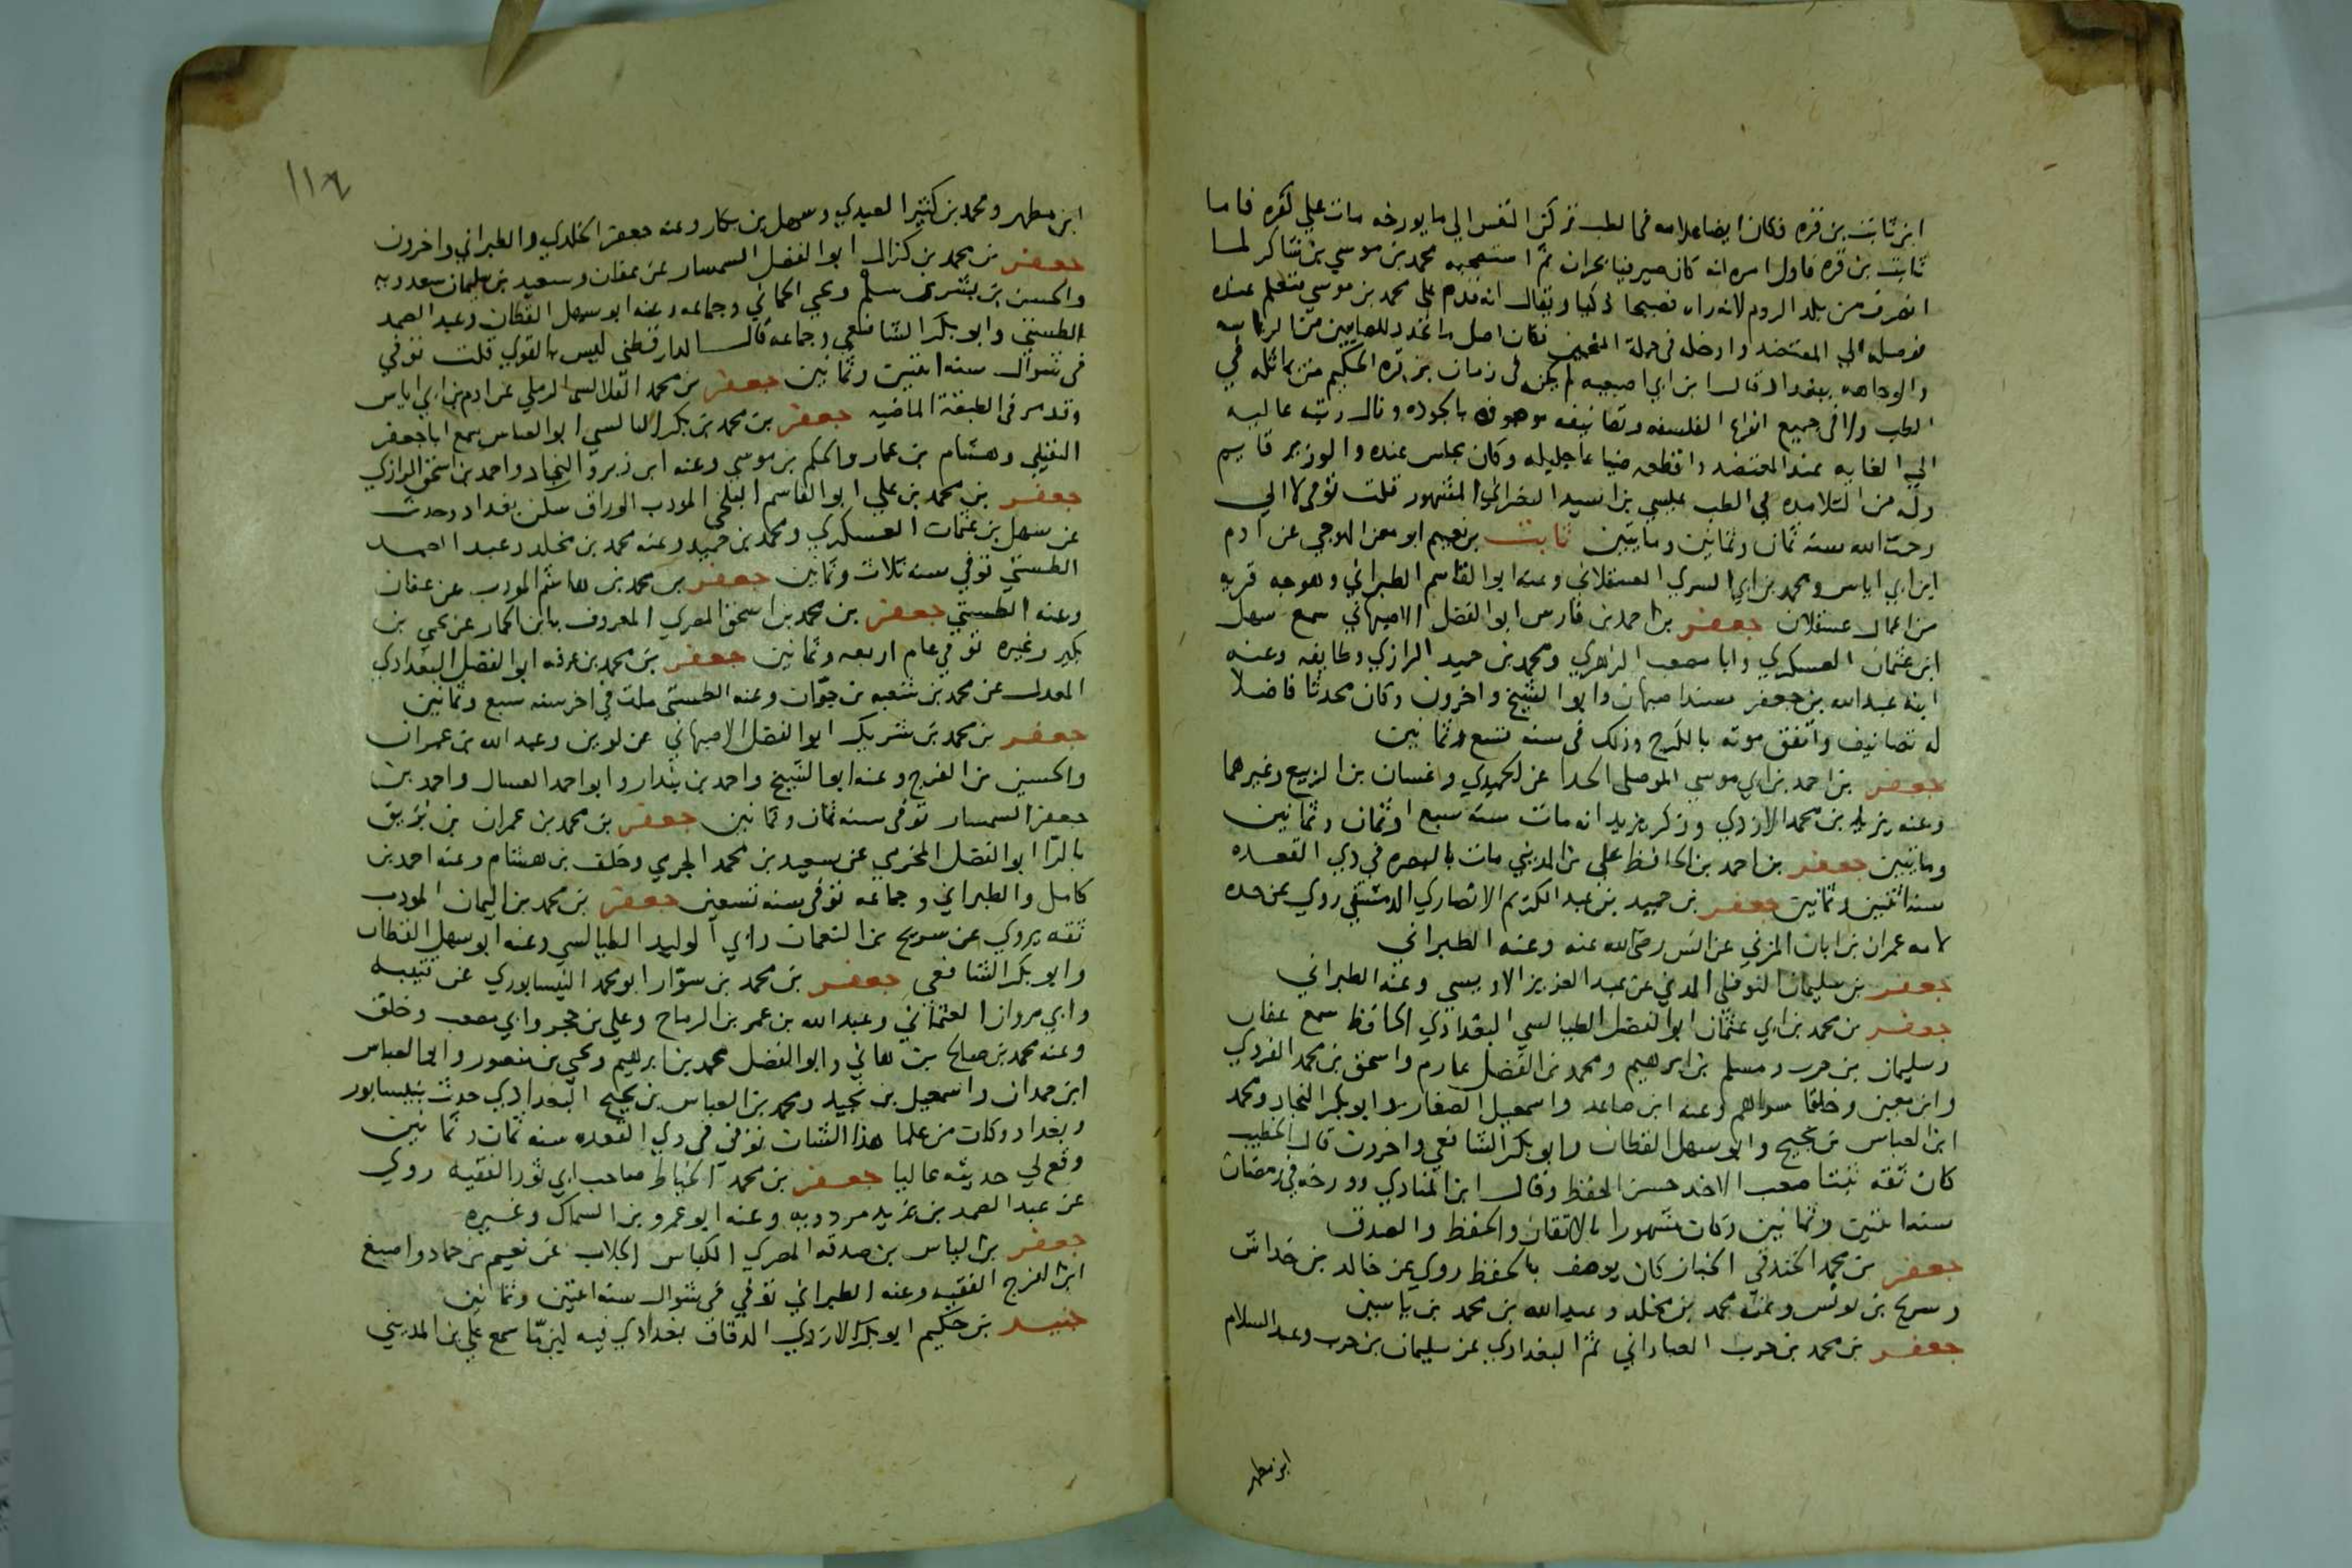 ابن ثابت بن قره فكان ايضا علامه في الطب تركن النفس الي ما يورخه مات علي كفره فاما
ثابت بن قره فاول امره انه كان صيرفيا بحران ثم استصحبه محمد بن موسي بن شاكر لما
انصرف من بلد الروم لانه راه فصيحا ذكيا ويقال انه قدم علي محمد بن موسي فتعلم عنده
فوصله الي المعتضد وادخله في جملة المنجمين فكان اصل ما تجدد للصابيين من الرياسه
والوجاهه ببغداد قال ابن ابي اصيبعه لم يكن في زمان بن قره الحكيم من يماثله في
الطب ولا في جميع انواع الفلسفه وتصانيفه موصوفه بالجوده ونال رتبه عاليه
الي الغايه عند المعتضد واقطعه ضياعا جليله وكان يجلس عنده والوزير قايم
وله من التلامده في الطب عيسي بن اسيد النصراني المشهور قلت توفي لا الي
رحمة الله سنه ثمان وثمانين ومايتين ثابت بن نعيم ابو معن الهوجي عن ادم
ابن ابي اياس ومحمد بن ابي السري العسقلاني وعنه ابو القاسم الطبراني وهوجه قريه
من اعمال عسقلان جعفر بن احمد بن فارس ابو الفضل الاصبهاني سمع سهل
ابن عثمان العسكري وابا مصعب الزهري ومحمد بن حميد الرازي وطايفه وعنه
ابنه عبدالله بن جعفر مسند اصبهان وابو الشيخ واخرون وكان محدثا فاضلا
له تصانيف واتفق موته بالكرج وذلك في سنه تسع وثمانين
جعفر بن احمد بن ابي موسي الموصلي الحذا عن الحميدي وغسان بن الربيع وغيرهما
وعنه يزيد بن محمد الازدي وذكر يزيد انه مات سنة سبع او ثمان وثمانين
ومايتين جعفر بن احمد بن الحافظ علي بن المديني مات بالبصره في ذي القعده
سنه اثنين وثمانين جعفر بن حميد بن عبد الكريم الانصاري الدمشقي روي عن جده
لامه عمران بن ابان المزني عن انس رضي الله عنه وعنه الطبراني
جعفر بن سليمان النوفلي المدني عن عبد العزيز الاويسي وعنه الطبراني
جعفر بن محمد بن ابي عثمان ابو الفضل الطيالسي البغدادي الحافظ سمع عفان
وسليمان بن حرب ومسلم بن ابرهيم ومحمد بن الفضل عارم واسحق بن محمد الفروي
وابن معين وخلقا سواهم وعنه ابن صاعد واسمعيل الصفار وابو بكر النجاد ومحمد
ابن العباس بن نجيح وابو سهل القطان وابو بكر الشافعي واخرون قال الخطيب
كان ثقه ثبتا صعب الاخذ حسن الحفظ وقال ابن المنادي وورخه في رمضان
سنه اثنين وثمانين وكان مشهورا بالاتقان والحفظ والصدق
جعفر بن محمد الخندقي الخباز كان يوصف بالحفظ روي عن خالد بن خداش
وسريج بن يونس وعنه محمد بن مخلد وعبدالله بن محمد بن ياسين
جعفر بن محمد بن حرب العباداني ثم البغدادي عن سليمان بن حرب وعبد السلام
ابن مطهر
١١٦
ابن مطهر ومحمد بن كثير العبدي وسهل بن بكار وعنه جعفر الخلدي والطبراني واخرون
جعفر بن محمد بن كزال ابو الفضل السمسار عن عفان وسعيد بن سليمان سعدويه
والحسن بن بشر بن سلم ويحي الحماني وجماعه وعنه ابو سهل القطان وعبد الصمد
الطستي وابو بكر الشافعي وجماعه قال الدارقطني ليس بالقوي قلت توفي
في شوال سنه اثنين وثمانين جعفر بن محمد القلانسي الرملي عن ادم بن ابي اياس
وقد مر في الطبقة الماضيه جعفر بن محمد بن بكر البالسي ابو العباس سمع ابا جعفر
النفيلي وهشام بن عمار والحكم بن موسي وعنه ابن زبر والنجاد واحمد بن اسحق الرازي
جعفر بن محمد بن علي ابو القاسم البلخي المودب الوراق سكن بغداد وحدث
عن سهل بن عثمان العسكري ومحمد بن حميد وعنه محمد بن مخلد وعبد الصمد
الطستي توفي سنه ثلاث وثمانين جعفر بن محمد بن هاشم المودب عن عفان
وعنه الطستي جعفر بن محمد بن اسحق المصري المعروف بابن الحمار عن يحي بن
بكير وغيره توفي عام اربعه وثمانين جعفر بن محمد بن عرفه ابو الفضل البغدادي
المعدل عن محمد بن شعبه بن جوان وعنه الطستي مات في اخر سنه سبع وثمانين
جعفر بن محمد بن شريك ابو الفضل الاصبهاني عن لوين وعبد الله بن عمران
والحسين بن الفرج وعنه ابو الشيخ واحمد بن بندار وابو احمد العسال واحمد بن
جعفر السمسار توفي سنه ثمان وثمانين جعفر بن محمد بن عمران بن بزيق
بالزا ابو الفضل المخرمي عن سعيد بن محمد الجرمي وخلف بن هشام وعنه احمد بن
كامل والطبراني وجماعه توفي سنه تسعين جعفر بن محمد بن اليمان المودب
ثقه يروي عن سريج بن النعمان وابي الوليد الطيالسي وعنه ابو سهل القطان
وابو بكر الشافعي جعفر بن محمد بن سوار ابو محمد النيسابوري عن قتيبه
وابي مروان العثماني وعبد الله بن عمر بن الرماح وعلي بن حجر وابي مصعب وخلق
وعنه محمد بن صالح بن هاني وابو الفضل محمد بن ابرهيم ويحي بن منصور وابو العباس
ابن حمدان واسمعيل بن نجيد ومحمد بن العباس بن نجيح البغدادي حدث بنيسابور
وبغداد وكان من علما هذا الشان توفي في ذي القعده سنه ثمان وثمانين
وقع لي حديثه عاليا جعفر بن محمد الخياط صاحب ابي ثور الفقيه روي
عن عبد الصمد بن يزيد مردويه وعنه ابو عمرو بن السماك وغيره
جعفر بن الياس بن صدقه المصري الكباس الجلاب عن نعيم بن حماد واصبغ
ابن الفرج الفقيه وعنه الطبراني توفي في شوال سنه اثنين وثمانين
جنيد بن حكيم ابو بكر الازدي الدقاق بغدادي فيه لين ما سمع علي بن المديني